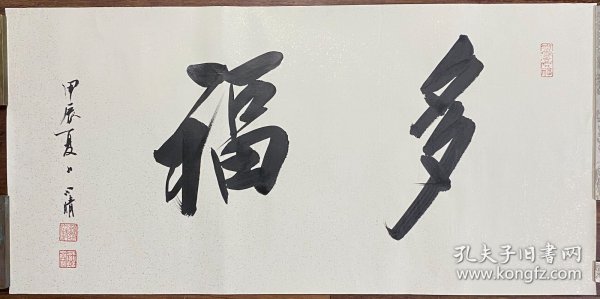 多福
甲辰夏
孔夫子旧書网
www.kongfz.com